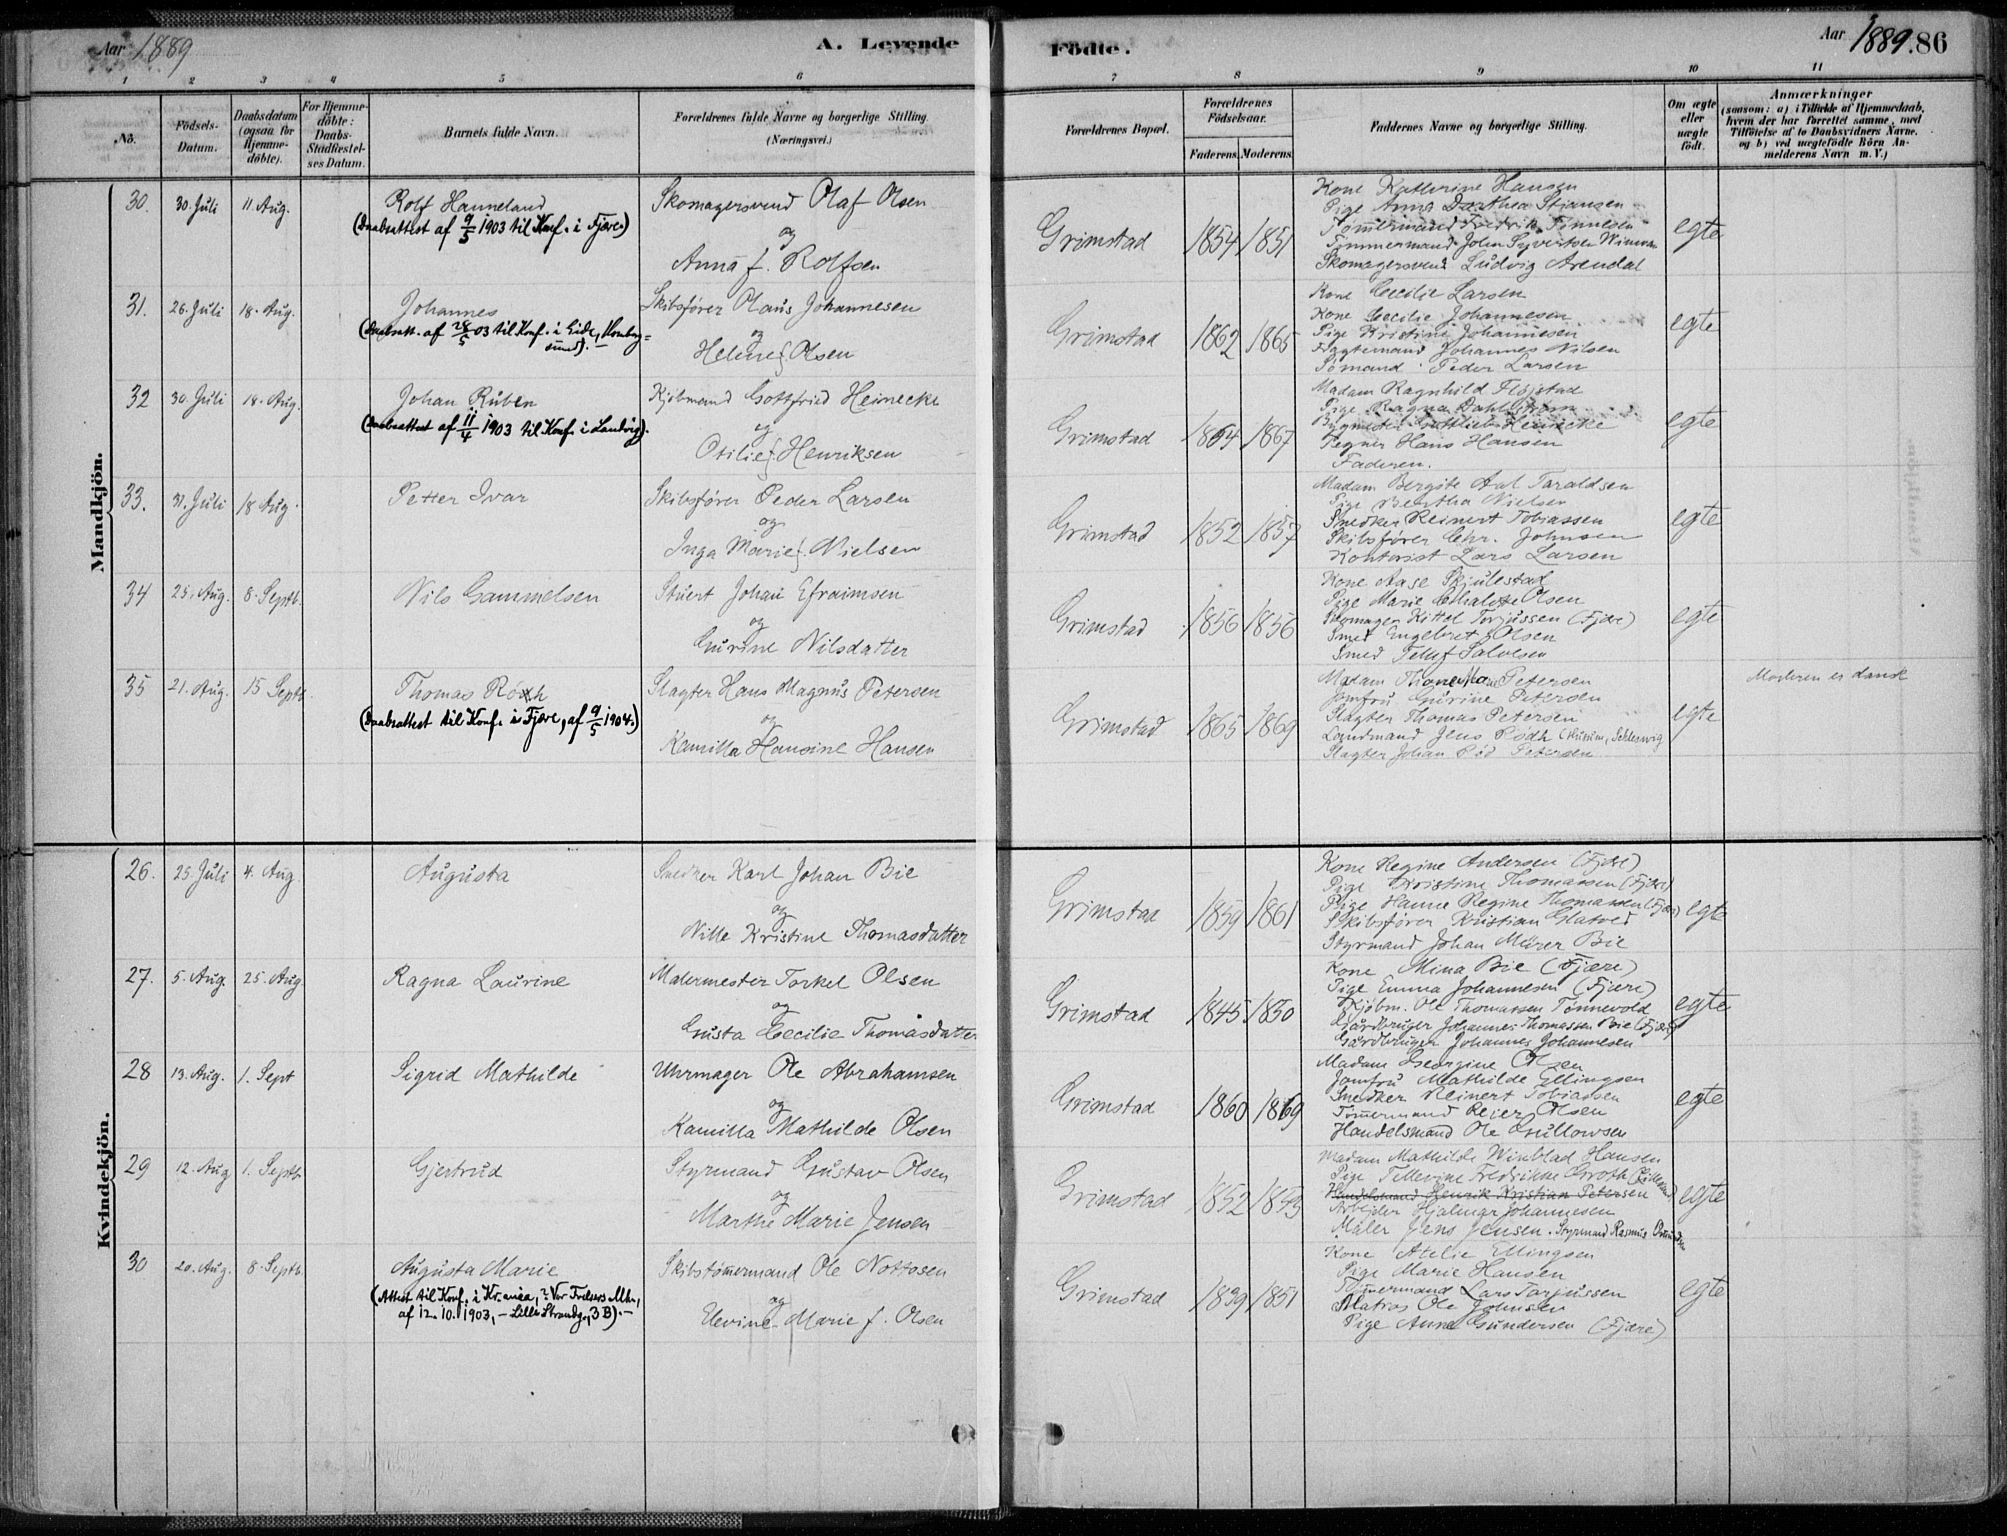 Aar 1889
A. Levende
Födte.
Aar 1889. 86
1 2 3 4 5 6 7 8 9 10 11
No.
Födsels-
Datum.
Daabsdatum
(ogsaa for
Hjemme-
döbte).
For Hjemme-
döbte:
Daabs-
Stadfæstel-
ses Datum.
Barnets fulde Navn.
Forældrenes fulde Navne og borgerlige Stilling.
(Næringsvei.)
Forældrenes Bopæl.
Forældrenes
Födselsaar.
Faderens. Moderens.
Faddernes Navne og borgerlige Stilling.
Om ægte
eller
uægte
födt.
Anmærkninger
(saasom: a) i Tilfælde af Hjemmedaab,
hvem der har forrettet samme, med
Tilföielse af to Daabsvidners Navne.
og b) ved uægtefödte Börn An-
melderens Navn m. V.)
Mandkjön.
30. 30. Juli 11 Aug.
Rolf Hanneland
(Daabsattest af 9/5 1903 til Konf. i Fjære.)
Skomagersvend Olaf Olsen
og
Anna f. Rolfsen
Grimstad 1854 1851
Kone Kathrine Hansen
Pige Anna Dorthea Stiansen
Tömmermand Fredrik Tönnesen
Tömmermand John Syvertsen
Skomagersvend Ludvig Arendal
egte
31. 26. Juli 18. Aug.
Johannes
(Daabsatt. af 28/5 03 til Konf. i Eide,
sund).
Skibsförer Olaus Johannesen
og
Helene f. Olsen
Grimstad 1862 1865
Kone Cecilie Larsen
Kone Cecilie Johannesen
Pige Kristine Johannesen
Johannes Nilsen
Sömand Peder Larsen
egte
32 30. Juli 18. Aug.
Johan Ruben
(Daabsattest af 11/4 1903 til Konf. i Landvig).
Kjöbmand Gottfried Heinecke
og
Otilie f. Henriksen
Grimstad 1864 1867
Madam Ragnhild Flöistad
Pige Ragna Dahlström
Gottlieb Heinecke
Hans Hansen
Faderen.
egte
33. 31. Juli 18 Aug.
Petter Ivar
Skibsförer Peder Larsen
og
Inga Marie f. Nielsen
Grimstad 1852 1857
Madam Bergite Taraldsen
Pige Bertha Nielsen
Snedker Reinert Tobiassen
Skibsförer Chr. Johnsen
Kontorist Lars Larsen
egte
34 25. Aug. 8. Septb.
Nils Gammelsen
Stuert Johan Efraimsen
og
Gurine Nilsdatter
Grimstad 1856 1856
Kone Aase Skjulestad
Pige Marie Olsen
Skomager Kittel Torjussen (Fjære)
Smed Engebret Olsen
Smed Tellef Salvesen
egte
35 21. Aug. 15 Septb.
Thomas
(Daabsattest til Konf. i Fjære, af 9/5 1904.)
Slagter Hans Magnus Petersen
og
Kamilla Hansine Hansen
Grimstad 1865 1869
Madam Petersen
Jomfru Gurine Petersen
Slagter Thomas Petersen
Landmand Jens Rödh (Husum, Schleswig
Slagter Johan Petersen
egte
Moderen er dansk
Kvindekjön.
26. 25. Juli 4. Aug.
Augusta
Snedker Karl Johan Bie
og
Nille Kristine Thomasdatter
Grimstad 1859 1861
Kone Regine Andersen (Fjære)
Pige Kristine Thomassen (Fjære)
Pige Hanne Regine Thomassen (Fjære)
Skibsförer Kristian Glatved
Styrmand Johan Bie
egte
27. 5. Aug. 25. Aug.
Ragna Laurine
Malermester Torkel Olsen
og
Gusta Cecilie Thomasdatter
Grimstad 1845 1850
Kone Mina Bie (Fjære)
Pige Emma Johannesen (Fjære)
Kjöbm. Ole Thomassen Tönnevold
Gårdbruger Johannes Thomassen Bie (Fjære)
Gårdbruger Johannes Johannesen
egte
28 13. Aug. 1. Sept
Sigrid Mathilde
Uhrmager Ole Abrahamsen
og
Kamilla Mathilde Olsen
Grimstad 1860 1869
Madam Georgine Olsen
Jomfru Mathilde Ellingsen
Snedker Reinert Tobiassen
Tömmermand Reier Olsen
Handelsmand Ole Gullowsen
egte
29 12. Aug 1. Septb.
Gjertrud
Styrmand Gustav Olsen
og
Marthe Marie Jensen
Grimstad 1852 1853
Madam Mathilde Winblad Hansen
Pige Tellevine Fredrikke Groth
Handelsmand Henrik Kristian Petersen
Arbeider Hjalmar Johannesen
Maler Jens Jensen. Styrmand Rasmus
egte
30 20. Aug. 8. Septb.
Augusta Marie
(Attest til Konf. i Kr.ania, Vor Frelsers Mh.,
af 12. 10. 1903, – Lille Strandg., 3 B). –
Skibstömmermand Ole Nottosen
og
Marie f. Olsen
Grimstad 1839 1851
Kone Atelie Ellingsen
Pige Marie Hansen
Tömmermand Lars Torjussen
Matros Ole Johnsen
Pige Anne Gundersen (Fjære)
egte